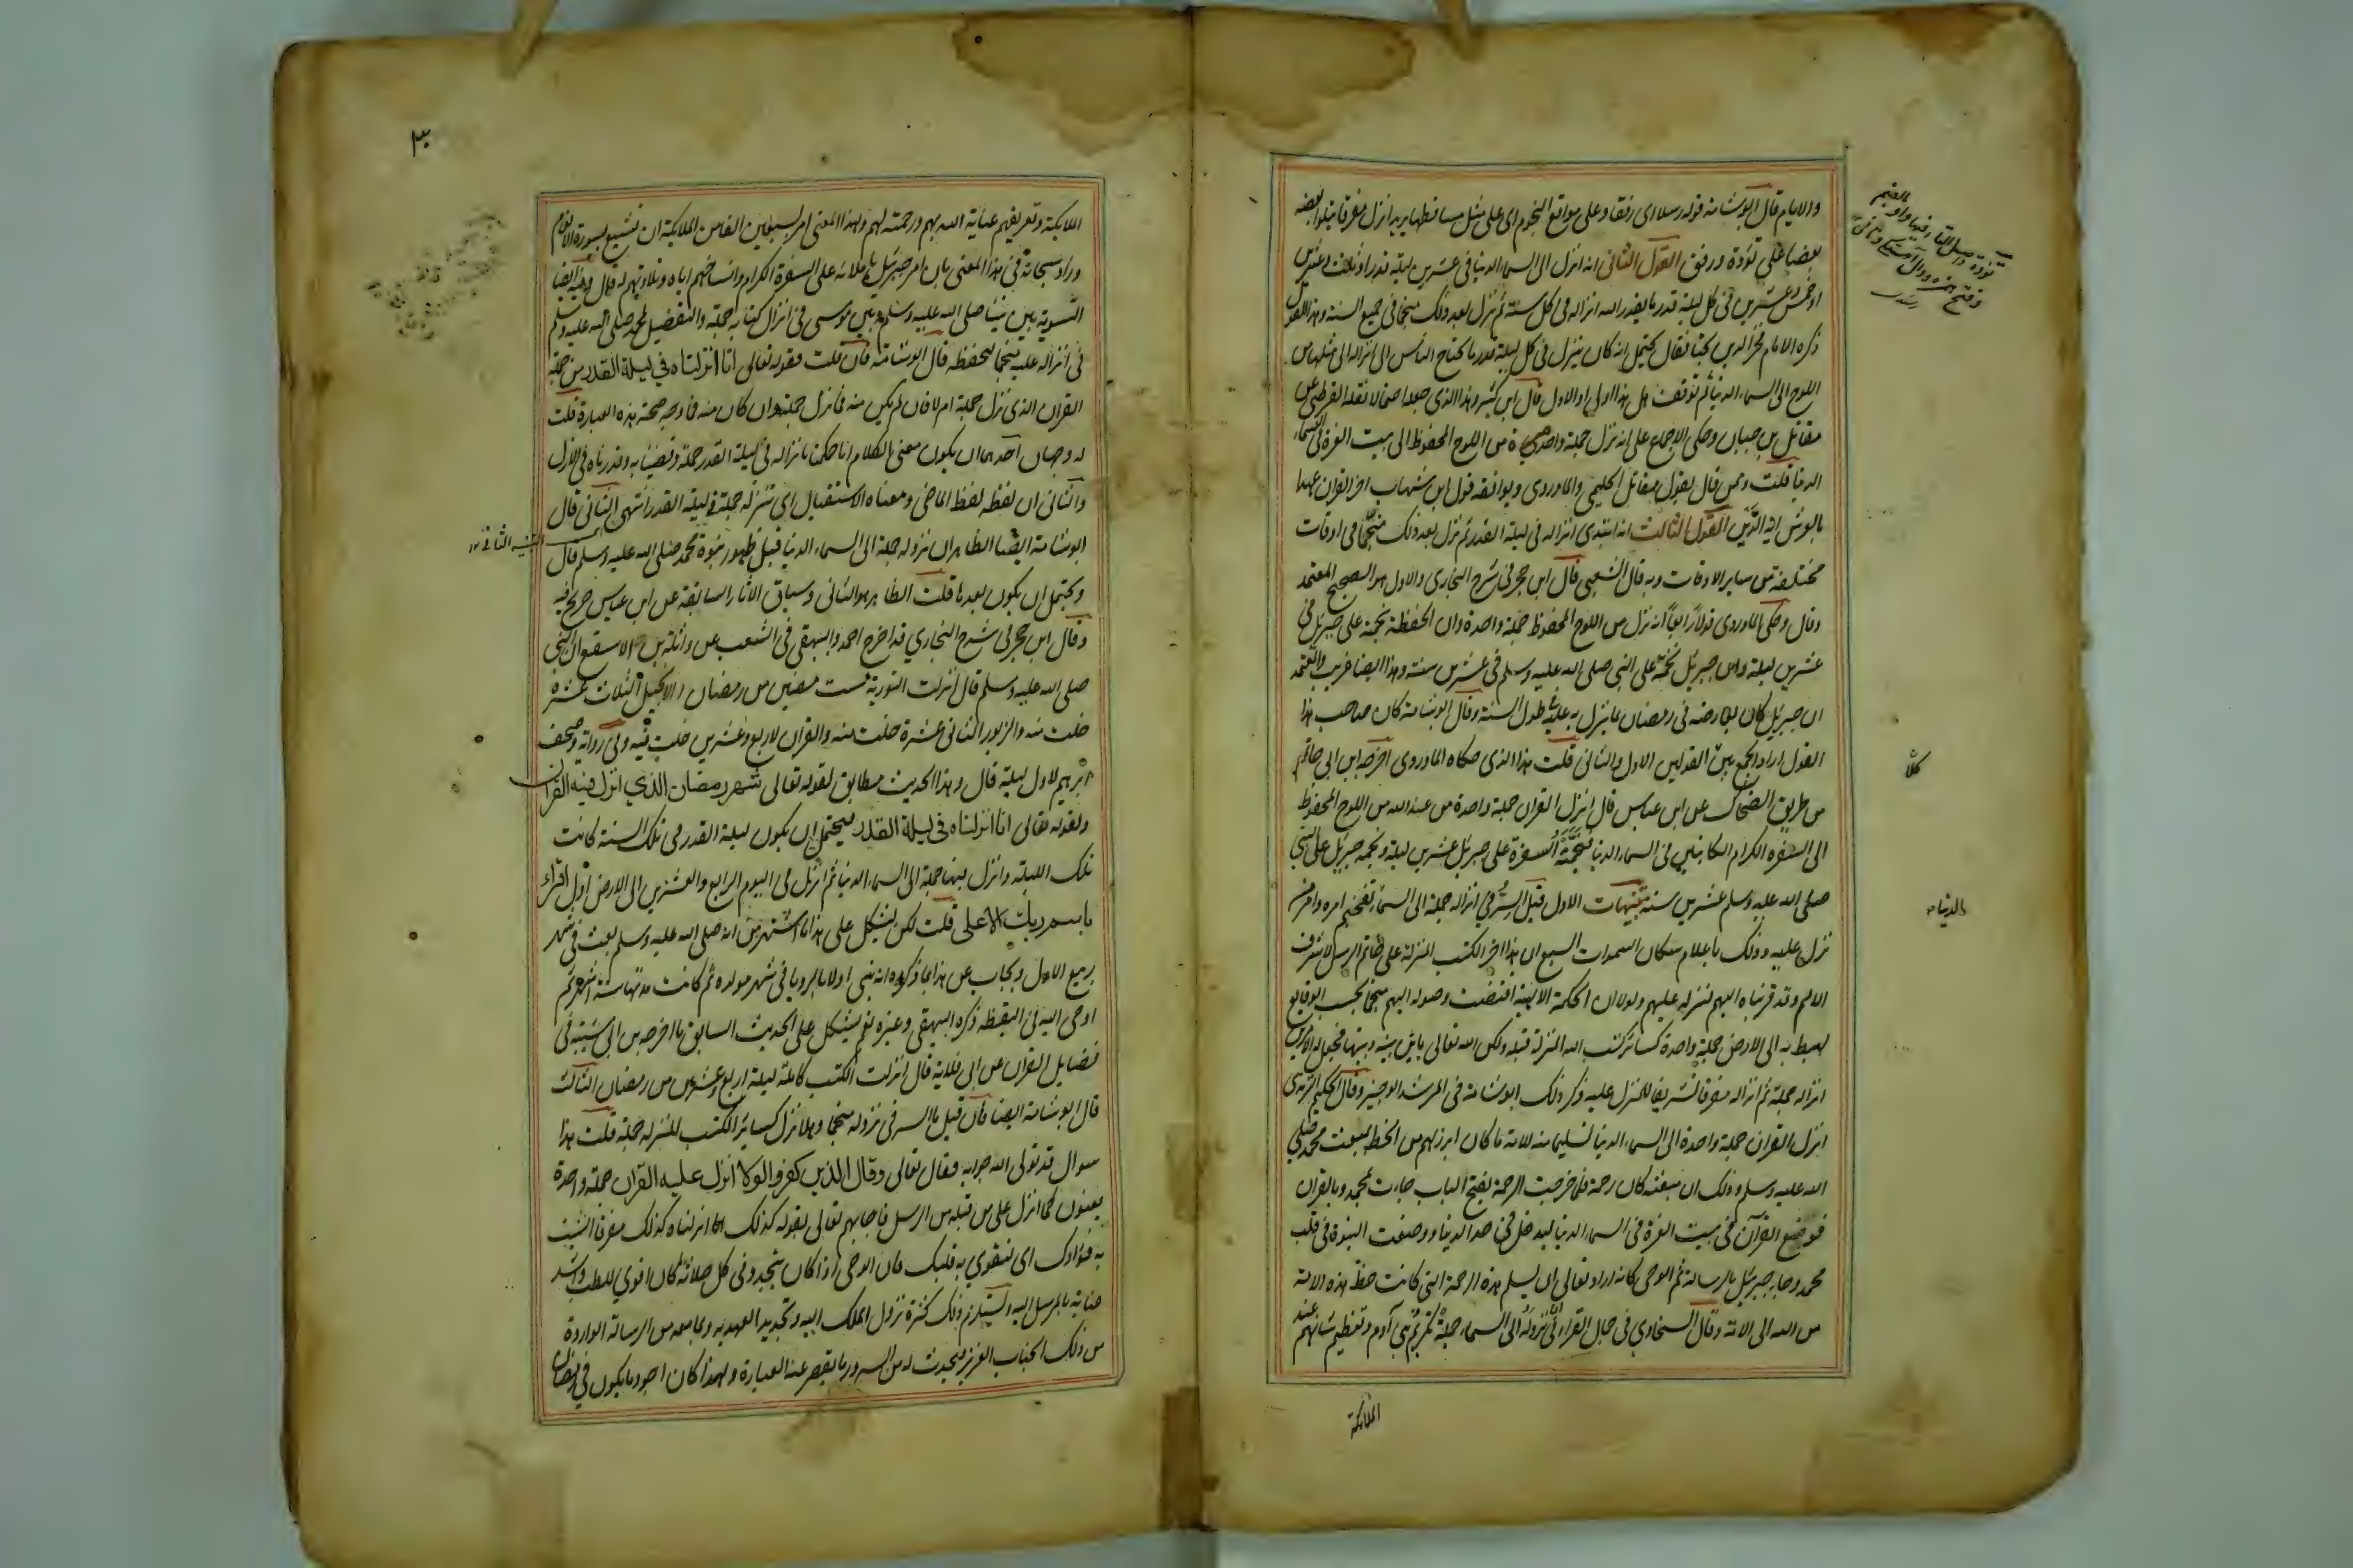 والايام قال ابوشامة قوله رسلا اى رفقا وعلى مواقع النجوم اى على مثل مساقطها يريد انزل مفرقا يتلوا بعضه
بعضا على تؤدة ورفق القول الثانى انه انزل الى السماء الدنيا فى عشرين ليلة قدر او ثلث وعشرين
او خمس وعشرين فى كل ليلة قدر ما يقدر الله انزاله فى كل سنة ثم نزل بعد ذلك منجما فى جميع السنة وهذا القول
ذكره الامام فخر الدين بحثا فقال يحتمل انه كان ينزل فى كل ليلة قدر ما يحتاج الناس الى انزاله الى مثلها من
اللوح الى السماء الدنيا ثم توقف هل هذا اولى او الاول قال ابن كثير وهذا الذى جعله احتمالا نقله القرطبى عن
مقاتل بن حبان وحكى الاجماع على انه نزل جملة واحدة من اللوح المحفوظ الى بيت العزة فى السماء
الدنيا قلت وممن قال بقول مقاتل الحليمى والماوردى ويوافقه قول ابن شهاب اخر القران عهدا
بالعرش اية الدَّين القول الثالث انه ابتدى انزاله فى ليلة القدر ثم نزل بعد ذلك منجّما فى اوقات
مختلفة من ساير الاوقات وبه قال الشعبى قال ابن حجر فى شرح البخارى والاول هو الصحيح المعتمد
وقال وحكى الماوردى قولا رابعا انه نزل من اللوح المحفوظ جملة واحدة وان الحفظة نجمته على جبريل فى
عشرين ليلة وان جبريل نجمه على النبى صلى الله عليه وسلم فى عشرين سنة وهذا ايضا غريب والمعتمد
ان جبريل كان يعارضه فى رمضان بما ينزل به عليه طول السنة وقال ابوشامة كان صاحب هذا
القول اراد الجمع بين القولين الاول والثانى قلت هذا الذى حكاه الماوردى اخرجه ابن ابى حاتم
من طريق الضحاك عن ابن عباس قال انزل القران جملة واحدة من عند الله من اللوح المحفوظ
الى السفرة الكرام الكاتبين فى السماء الدنيا فنجّمته السفرة على جبريل عشرين ليلة ونجمه جبريل على النبى
صلى الله عليه وسلم عشرين سنة تنبيهات الاول قيل السّرّ فى انزاله جملة الى السماء تفخيم امره وامر من
نزل عليه وذلك باعلام سكان السموات السبع ان هذا اخر الكتب المنزلة على خاتم الرسل لاشرف
الامم وقد قربناه اليهم لننزله عليهم ولولا ان الحكمة الالهية اقتضت وصوله اليهم منجما بحسب الوقايع
لهبط به الى الارض جملة واحدة كسائر كتب الله المنزلة قبله ولكن الله تعالى باين بينه وبينها فجعل له الامرين
انزاله جملة ثم انزاله مفرقا تشريفا للمنزل عليه ذكر ذلك ابوشامة فى المرشد الوجيز وقال الحكيم الترمذى
انزل القران جملة واحدة الى السماء الدنيا تسليما منه للامة ما كان ابرز لهم من الحظ بمبعث محمد صلى
الله عليه وسلم وذلك ان مبعثه كان رحمة فلما خرجت الرحمة بفتح الباب جاءت بمحمد وبالقران
فوضع القرآن فى بيت العزة فى السماء الدنيا ليدخل فى حد الدنيا ووضعت النبوة فى قلب
محمد وجاء جبريل بالرسالة ثم الوحى كانه اراد تعالى ان يسلم هذه الرحمة التى كانت حظ هذه الامة
من الله الى الامة وقال السخاوى فى جمال القراء فى نزوله الى السماء جملة تكريم بنى آدم وتعظيم شانهم عند
الملائكة
الدنيا
الملائكة وتعريفهم عناية الله بهم ورحمته لهم ولهذا المعنى امر سبعين الفا من الملائكة ان تشيع سورة الانعام
وزاد سبحانه فى هذا المعنى بان امر جبريل باملائه على السفرة الكرام وانساخهم اياه وتلاوتهم له قال وفيه ايضا
التسوية بين نبينا صلى الله عليه وسلم وبين موسى فى انزال كتابه جملة والتفضيل لمحمد صلى الله عليه وسلم
فى انزاله عليه منجما ليحفظه قال ابوشامة فان قلت فقوله تعالى انا انزلناه فى ليلة القدر من جملة
القران الذى نزل جملة ام لا فان لم يكن منه فما نزل جملة وان كان منه فما وجه صحة هذه العبارة قلت
له وجهان احدهما ان يكون معنى الكلام انا حكمنا بانزاله فى ليلة القدر جملة وقضينا به وقدرناه فى الازل
والثانى ان لفظه لفظ الماضى ومعناه الاستقبال اى تنزله جملة فى ليلة القدر انتهى الثانى قال
التنبيه الثانى
ابوشامة ايضا الظاهر ان نزوله جملة الى السماء الدنيا قبل ظهور نبوة محمد صلى الله عليه وسلم قال
ويحتمل ان يكون بعدها قلت الظاهر هو الثانى وسياق الاثار السابقة عن ابن عباس صريح فيه
وقال ابن حجر فى شرح البخاري قد اخرج احمد والبيهقى فى الشعب عن واثلة بن الاسقع ان النبى
صلى الله عليه وسلم قال انزلت التورية لست مضين من رمضان والانجيل لثلاث عشرة
خلت منه والزبور لثمانى عشرة خلت منه والقران لاربع وعشرين خلت منه وفى رواية وصحف
ابرهيم لاول ليلة قال وهذا الحديث مطابق لقوله تعالى شهر رمضان الذي انزل فيه القران
ولقوله تعالى انا انزلناه فى ليلة القدر فيحتمل ان يكون ليلة القدر فى تلك السنة كانت
تلك الليلة وانزل فيها جملة الى السماء الدنيا ثم انزل فى اليوم الرابع والعشرين الى الارض اول اقراء
باسم ربك الاعلى قلت لكن يشكل على هذا ما اشتهر من انه صلى الله عليه وسلم بعث فى شهر
ربيع الاول ويجاب عن هذا بما ذكروه انه نبى اولا بالرويا فى شهر مولده ثم كانت مدتها ستة اشهر ثم
اوحى اليه فى اليقظة ذكره البيهقى وغيره نعم يشكل على الحديث السابق ما اخرجه بن ابى شيبة فى
فضايل القران عن ابى قلابة قال انزلت الكتب كاملة ليلة اربع وعشرين من رمضان الثالث
قال ابوشامة ايضا فان قيل ما السر فى نزوله منجما وهلا نزل كسائر الكتب المنزله جملة قلت هذا
سوال قد تولى الله جوابه فقال تعالى وقال الذين كفروا لولا انزل عليه القران جملة واحدة
يعنون كما انزل على من قبله من الرسل فاجابهم تعالى بقوله كذلك اى انزلناه كذلك مفرقا لنثبت
به فؤادك اى لنقوي به قلبك فان الوحى اذا كان يتجدد فى كل حادثة كان اقوي للقلب واشد
عناية بالمرسل اليه ويستلزم ذلك كثرة نزول الملك اليه وتجديد العهد به وبما معه من الرسالة الواردة
من ذلك الجناب العزيز فيحدث له من السرور ما يقصر عنه العبارة ولهذا كان اجود ما يكون فى رمضان